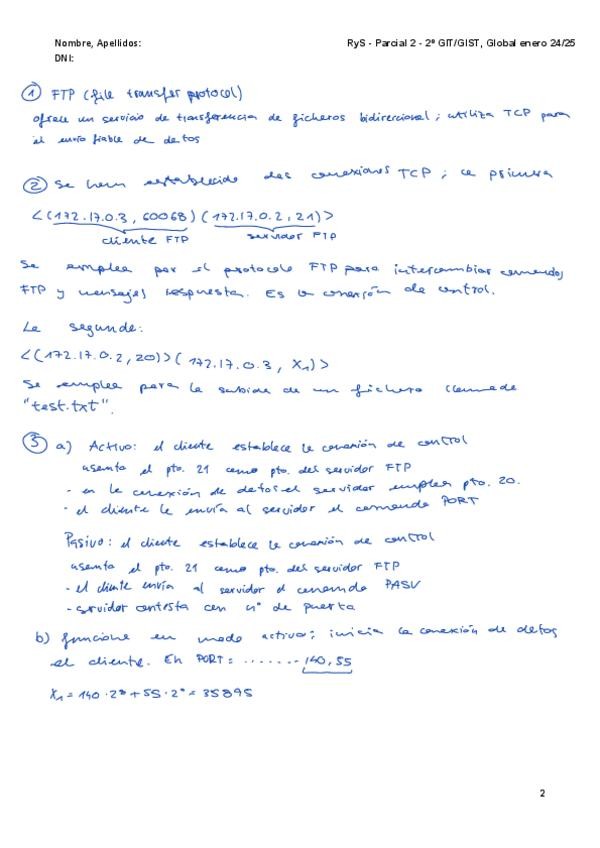 Nombre, Apellidos: RyS - Parcial 2 - 2º GIT/GIST, Global enero 24/25
DNI:
① FTP (file transfer protocol)
ofrece un servicio de transferencia de ficheros bidireccional; utiliza TCP para
el envío fiable de datos
② Se han establecido dos conexiones TCP; la primera
<(172.17.0.3, 60068)(172.17.0.2, 21)>
cliente FTP servidor FTP
Se emplea por el protocolo FTP para intercambiar comandos
FTP y mensajes respuesta. Es la conexión de control.
La segunda:
<(172.17.0.2, 20)>(172.17.0.3, X₁)>
Se emplea para la subida de un fichero llamado
"test.txt".
③ a) Activo: el cliente establece la conexión de control
usando el pto. 21 como pto. del servidor FTP
- en la conexión de datos el servidor emplea pto. 20.
- el cliente le envía al servidor el comando PORT
Pasivo: el cliente establece la conexión de control
usando el pto. 21 como pto. del servidor FTP
- el cliente envía al servidor el comando PASV
- servidor contesta con nº de puerta
b) funciona en modo activo; inicia la conexión de datos
el cliente. En PORT: .......140,55
X₁ = 140·2⁸ + 55·2⁰ = 35895
2